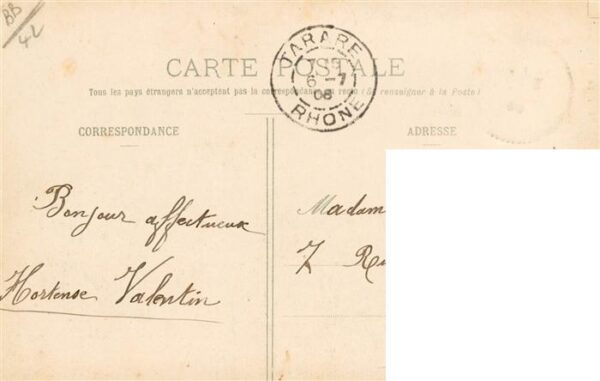 BB
42
CARTE POSTALE
TARARE
6 - 7
08
RHONE
Tous les pays étrangers n'acceptent pas la correspondance au recto (Se renseigner à la Poste)
CORRESPONDANCE
ADRESSE
Bonjour affectueux
Hortense Valentin
Madam
7 Ru